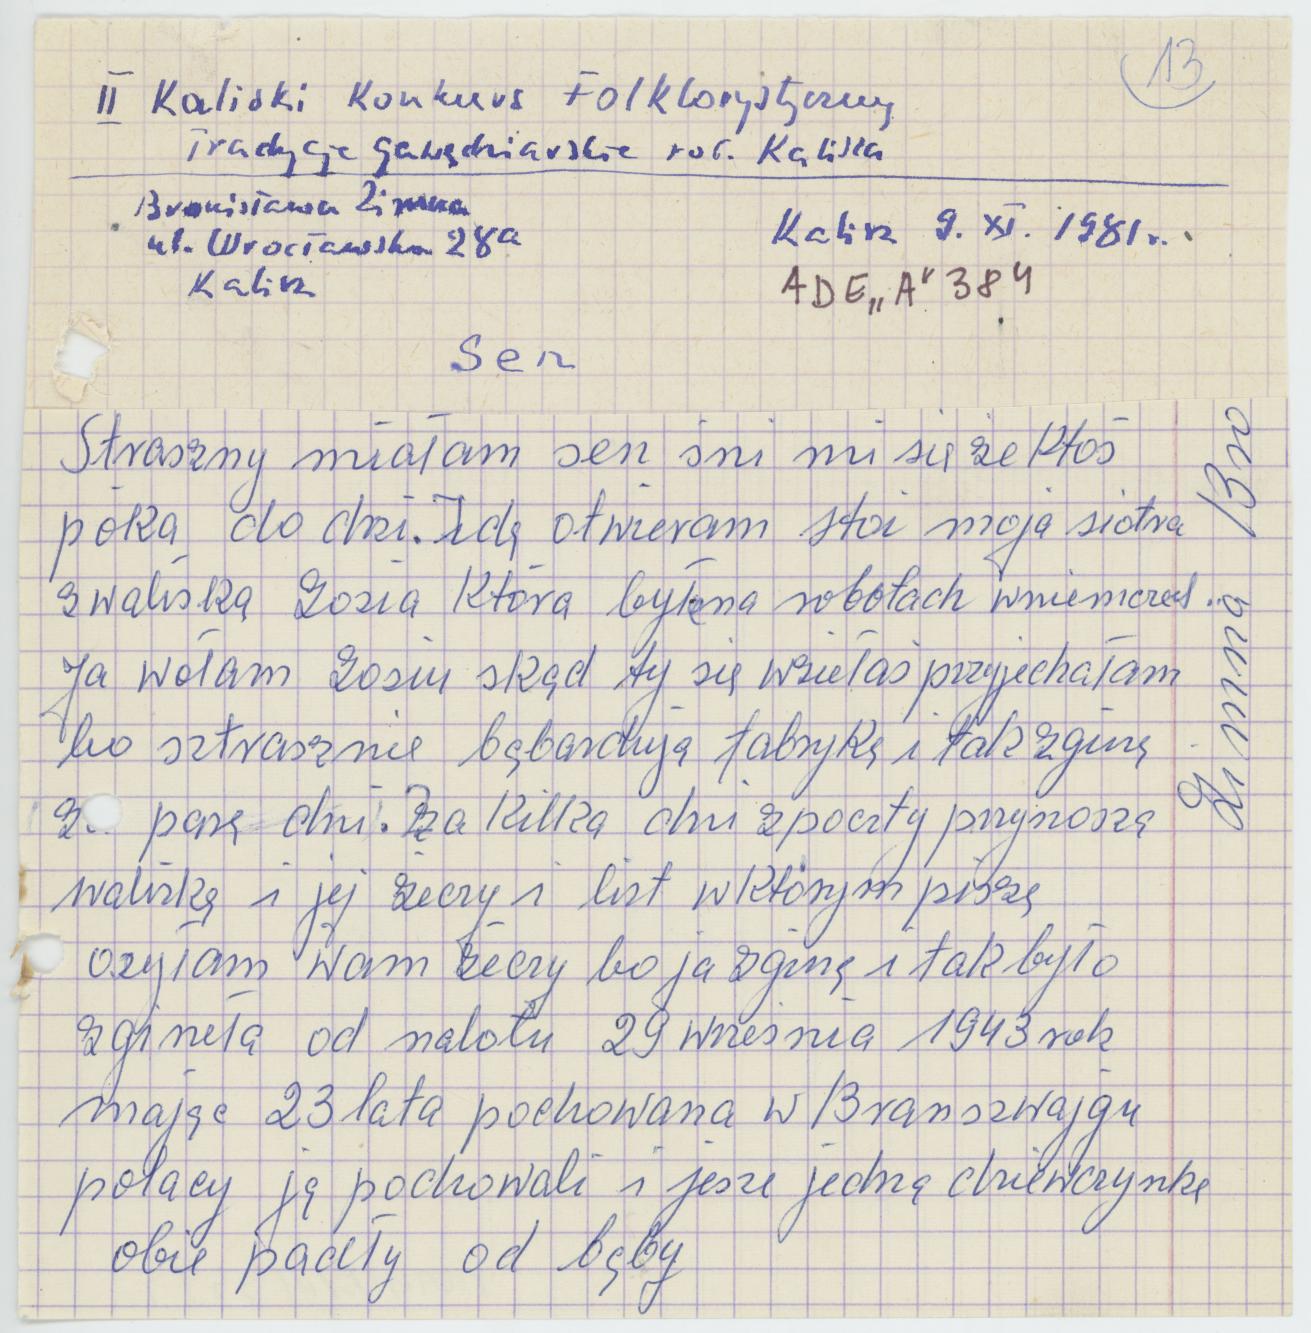 13
II Kaliski Konkurs Folklorystyczny
Tradycje gawędziarskie rob. Kalisza
Bronisława Zimna
ul. Wrocławska 28a
Kalisz
Kalisz 9. XI. 1981r.
ADE „A" 384
Sen
Straszny miałam sen śni mi się że ktoś
póka do dzi. Idę otwieram stoi moja siotra
zwaliską Zosia która była na robotach wniemczech.
Ja wołam Zosiu skąd ty się wziełaś przyjechałam
bo sztrasznie bąbardują fabrykę i tak zginę
parę dni. Za kilka dni zpoczty przynoszą
waliskę i jej żeczy i list wktórym piszę
ozyłam wam żeczy bo ja zginę i tak było
zgineła od nalotu 29 wrieśnia 1943 rok
mając 23 lata pochowana w Branszwajgu
polacy ją pochowali i jesze jedną dziewczynkę
obie padły od bąby
Zimna Bro